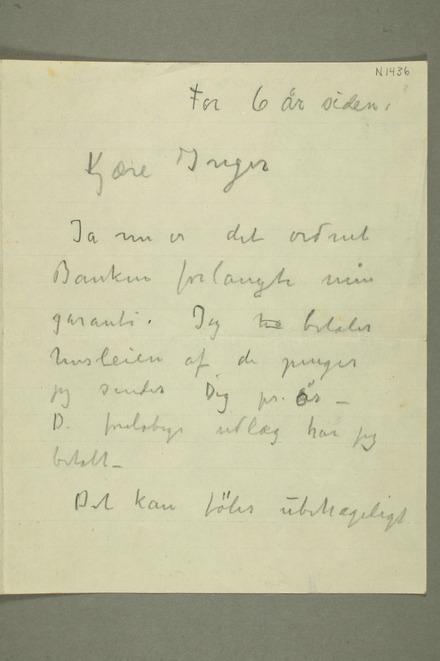 N 1436
For 6 år siden.
Kjære Inger
Ja nu er det ordnet
Banken forlangte min
garanti. Jeg betaler
husleien af de penger
jeg sender Dig pr. år –
D. foreløbige udlæg har jeg
betalt –
Det kan føles ubehageligt